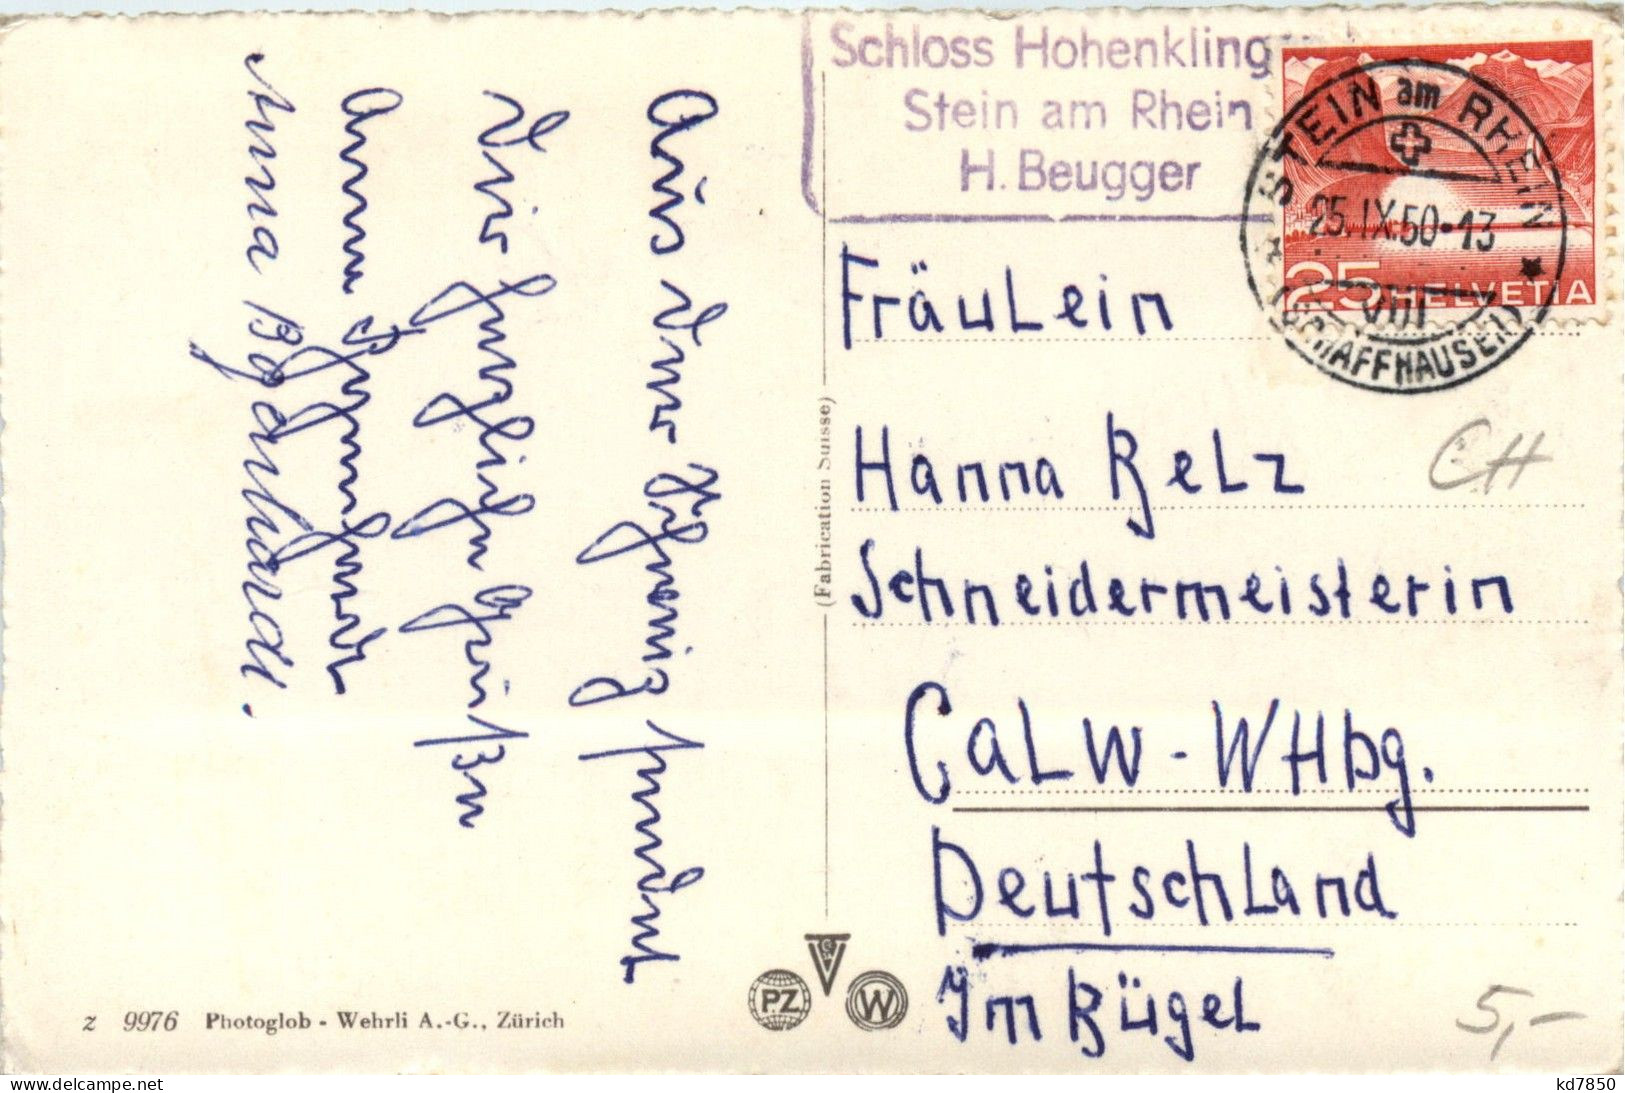 Aus der Schweiz sendet
Dir herzliche Grüße
Anna Bozenhardt
Anna Bozenhardt.
Schloss Hohenkling
Stein am Rhein
H. Beugger
STEIN am RHEIN
25.IX.50-13
(SCHAFFHAUSEN)
25 HELVETIA
Fräulein
Hanna Relz
Schneidermeisterin
Calw - WHbg.
Deutschland
Im Rügel
CH
5,-
(Fabrication Suisse)
PZ
W
z 9976 Photoglob - Wehrli A.-G., Zürich
kd7850
https://www.delcampe.net